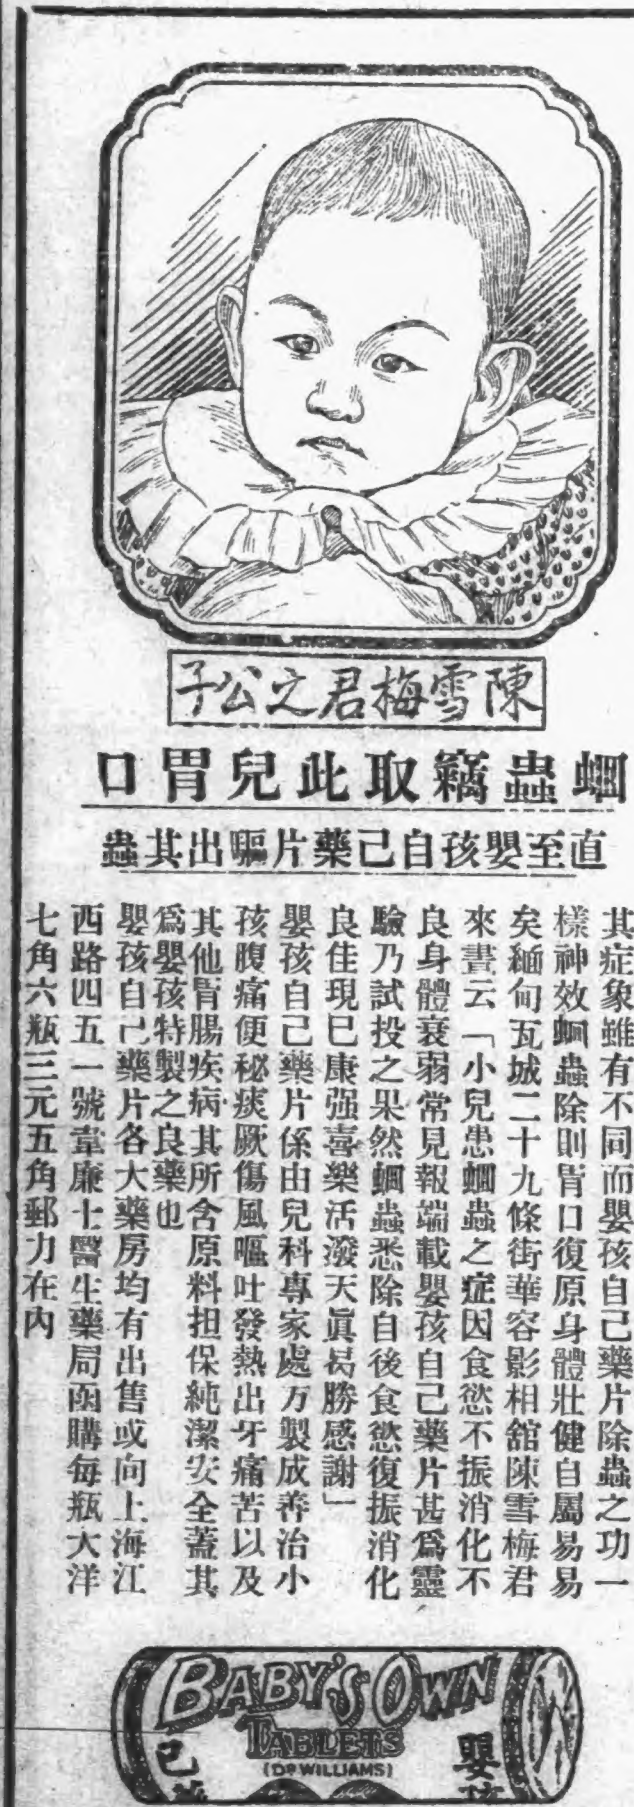 陳雪梅君之公子
蛔蟲竊取此兒胃口
直至嬰孩自己藥片驅出其蟲
其症象雖有不同而嬰孩自己藥片除蟲之功一
樣神效蛔蟲除則胃口復原身體壯健自屬易易
矣緬甸瓦城二十九條街華容影相舘陳雪梅君
來書云「小兒患蛔蟲之症因食慾不振消化不
良身體衰弱常見報端載嬰孩自己藥片甚爲靈
驗乃試投之果然蛔蟲悉除自後食慾復振消化
良佳現已康强喜樂活潑天眞曷勝感謝」
嬰孩自己藥片係由兒科專家處方製成善治小
孩腹痛便秘痰厥傷風嘔吐發熱出牙痛苦以及
其他胃腸疾病其所含原料担保純潔安全蓋其
爲嬰孩特製之良藥也
嬰孩自己藥片各大藥房均有出售或向上海江
西路四五一號韋廉士醫生藥局函購每瓶大洋
七角六瓶三元五角郵力在內
BABY'S OWN
TABLETS
(DR WILLIAMS)
嬰孩
己